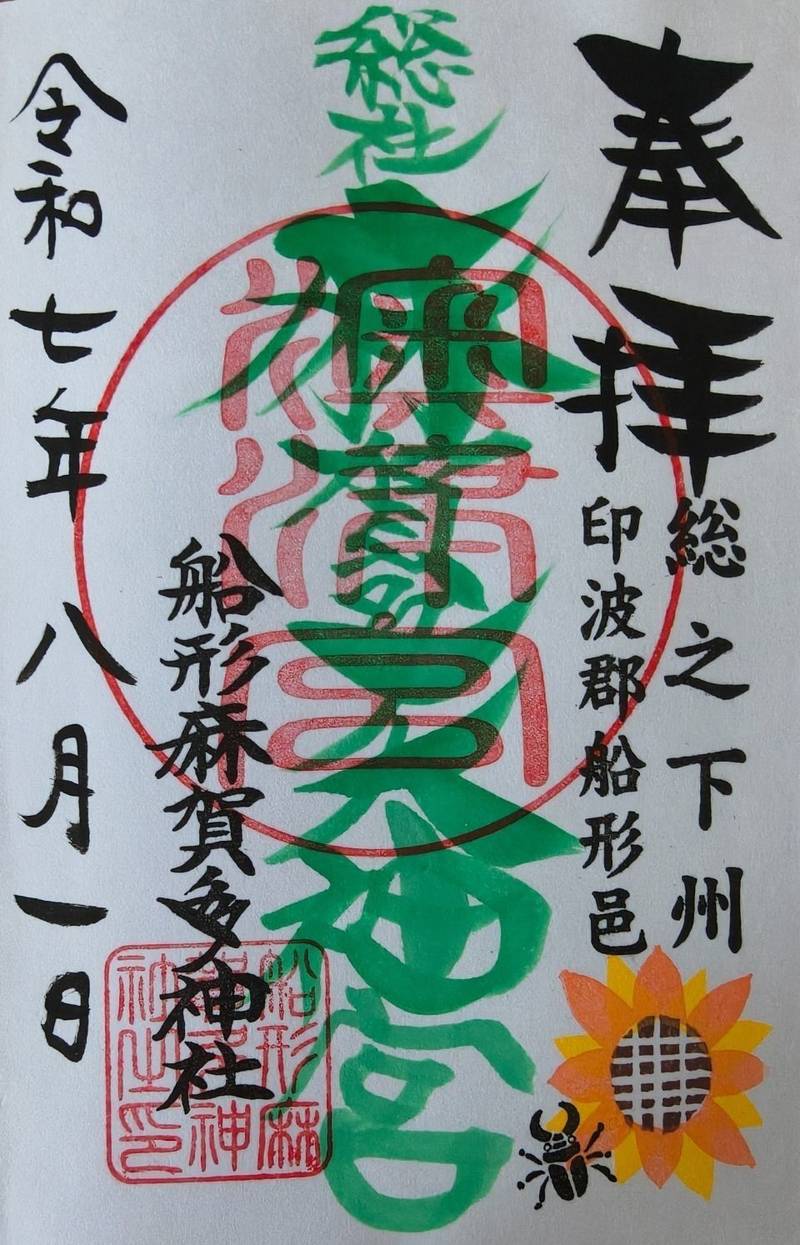 奉拝
総之下州
印波郡船形邑
総社
麻賀多大神宮
船形麻賀多神社
令和七年八月一日
船形麻
賀多神
社之印